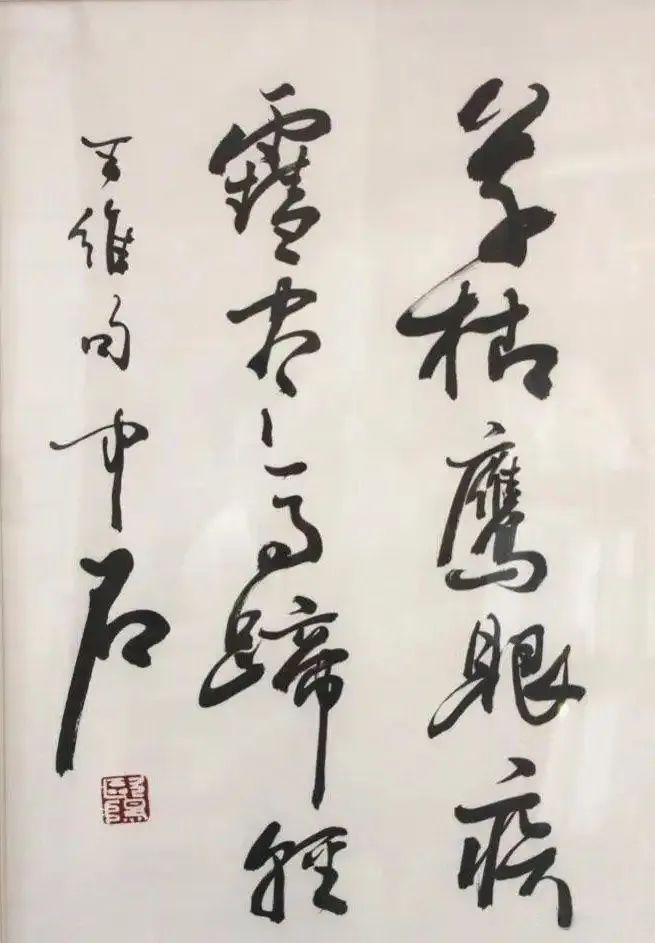 草枯鷹眼疾
雪盡馬蹄輕
王維句 中石